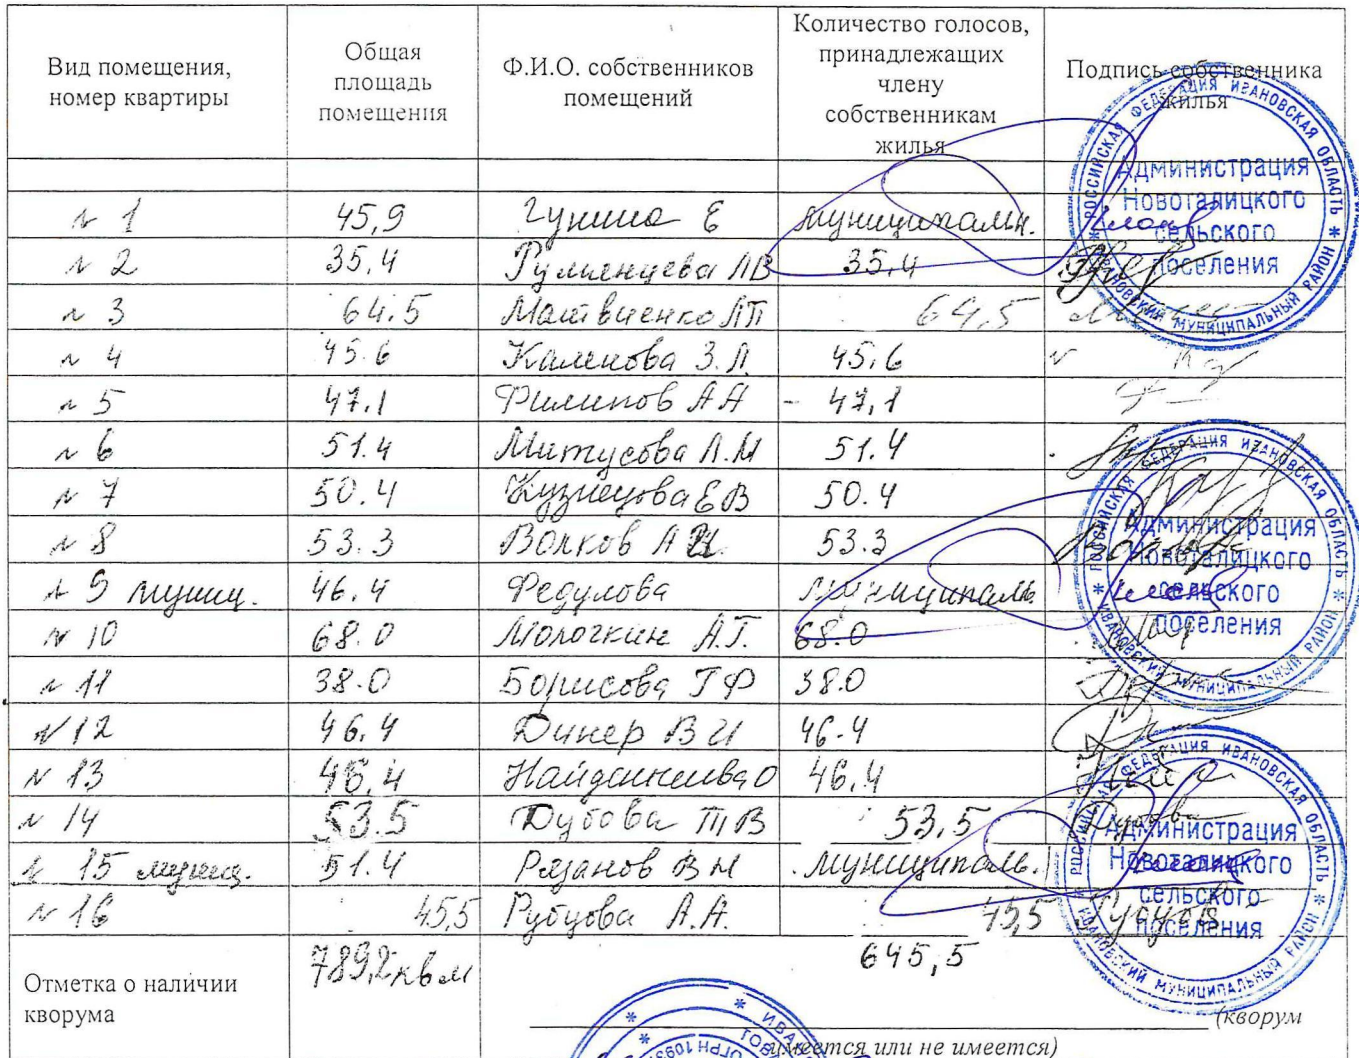 Вид помещения, номер квартиры
Общая площадь помещения
Ф.И.О. собственников помещений
Количество голосов, принадлежащих члену собственникам жилья
Подпись собственника жилья
№ 1 45,9 Гунина Е муниципальн.
№ 2 35,4 Румянцева ЛВ 35,4
№ 3 64.5 Матвиенко ЛП 64,5
№ 4 45.6 45,6
№ 5 47.1 Филипов АА - 47,1
№ 6 51.4 Митусова Л.М 51.4
№ 7 50.4 Кузнецова ЕВ 50.4
№ 8 53.3 Волков А 53.3
№ 9 муниц. 46.4 Федулова муниципаль.
№ 10 68.0 Молочкин А.Г. 68.0
№ 11 38.0 Борисова ГФ 38.0
№ 12 46.4 Динер ВИ 46.4
№ 13 46.4
№ 14 53.5 Дубова ТВ 53,5 Дубова
№ 15 муниц. 51.4 Рязанов ВН муниципаль.
№ 16 45,5 А.А. 45,5
Отметка о наличии кворума
789,2 кв м
645,5
(кворум
имеется или не имеется)
РОССИЙСКАЯ ФЕДЕРАЦИЯ ИВАНОВСКАЯ ОБЛАСТЬ * ИВАНОВСКИЙ МУНИЦИПАЛЬНЫЙ РАЙОН *
Администрация
Новоталицкого
сельского
поселения
РОССИЙСКАЯ ФЕДЕРАЦИЯ ИВАНОВСКАЯ ОБЛАСТЬ * ИВАНОВСКИЙ МУНИЦИПАЛЬНЫЙ РАЙОН *
Администрация
Новоталицкого
сельского
поселения
РОССИЙСКАЯ ФЕДЕРАЦИЯ ИВАНОВСКАЯ ОБЛАСТЬ * ИВАНОВСКИЙ МУНИЦИПАЛЬНЫЙ РАЙОН *
Администрация
Новоталицкого
сельского
поселения